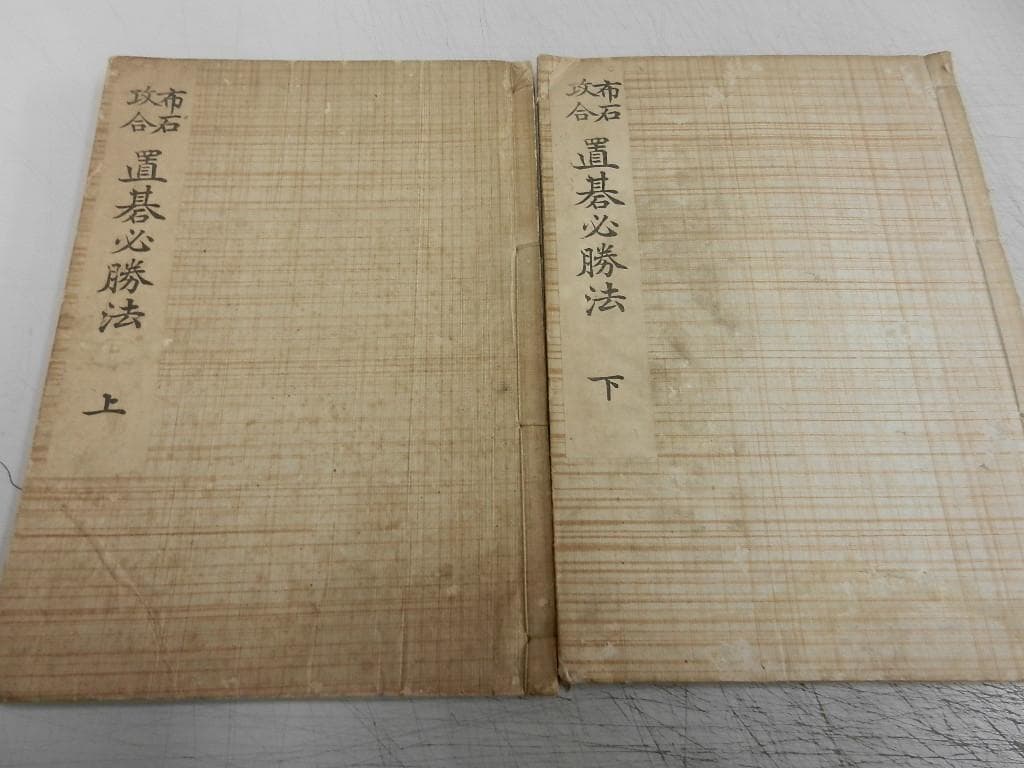 布石
攻合
置碁必勝法
上
布石
攻合
置碁必勝法
下